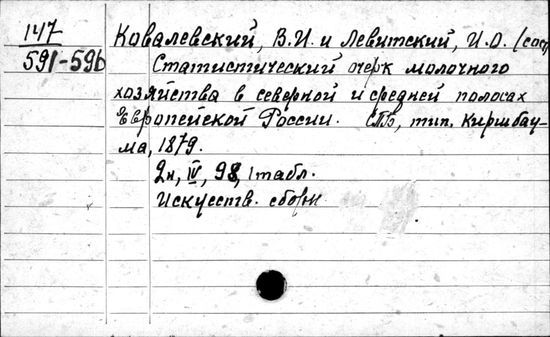 147
591-596
Ковалевский, В.И. и Левитский, И.О. (сост
Статистический очерк молочного
хозяйства в северной и средней полосах
Европейской России. СПБ, тип. Киршбау-
ма, 1879.
2н, IV, 98, 1 табл.
Искусств. сборн